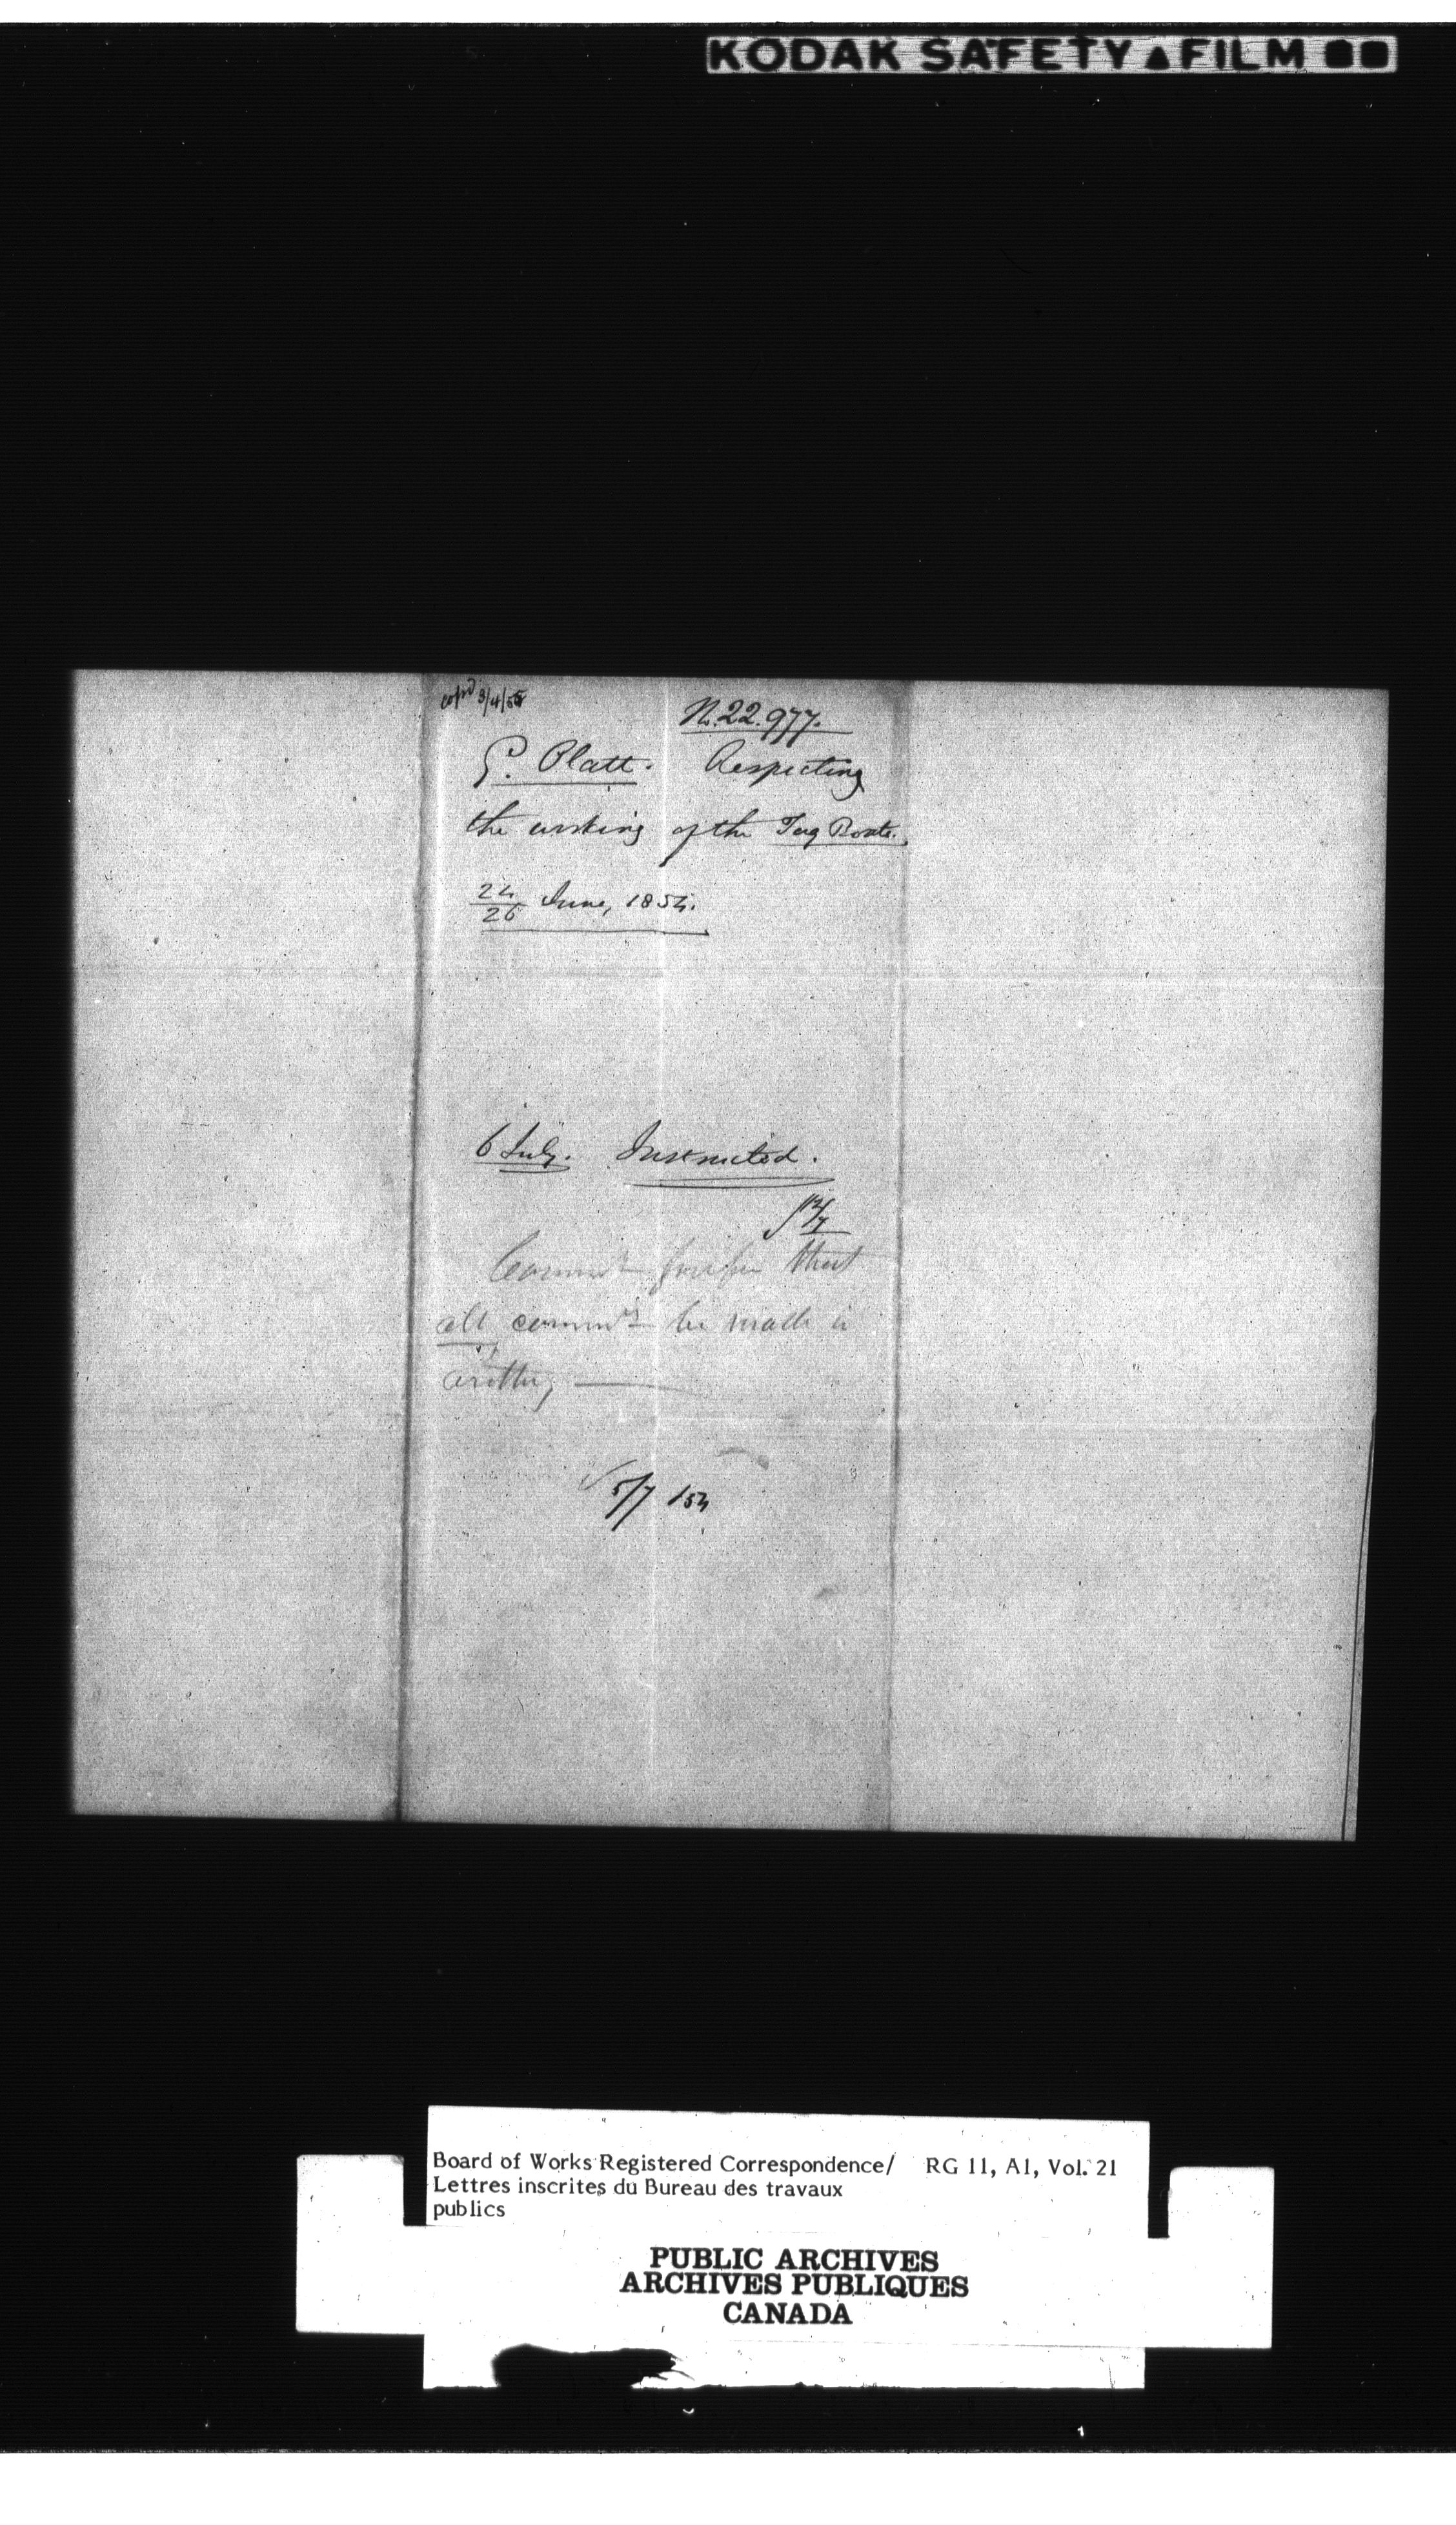 KODAK SAFETY ▲ FILM
cop'd 3/4/55
N. 22.977.
G. Platt. Respecting
the working of the Tug Boats.
24/26 June, 1854.
6 July. Instructed.
that
all commns be made in
writing
5/7 /54
Board of Works Registered Correspondence/ RG 11, A1, Vol. 21
Lettres inscrites du Bureau des travaux
publics
PUBLIC ARCHIVES
ARCHIVES PUBLIQUES
CANADA